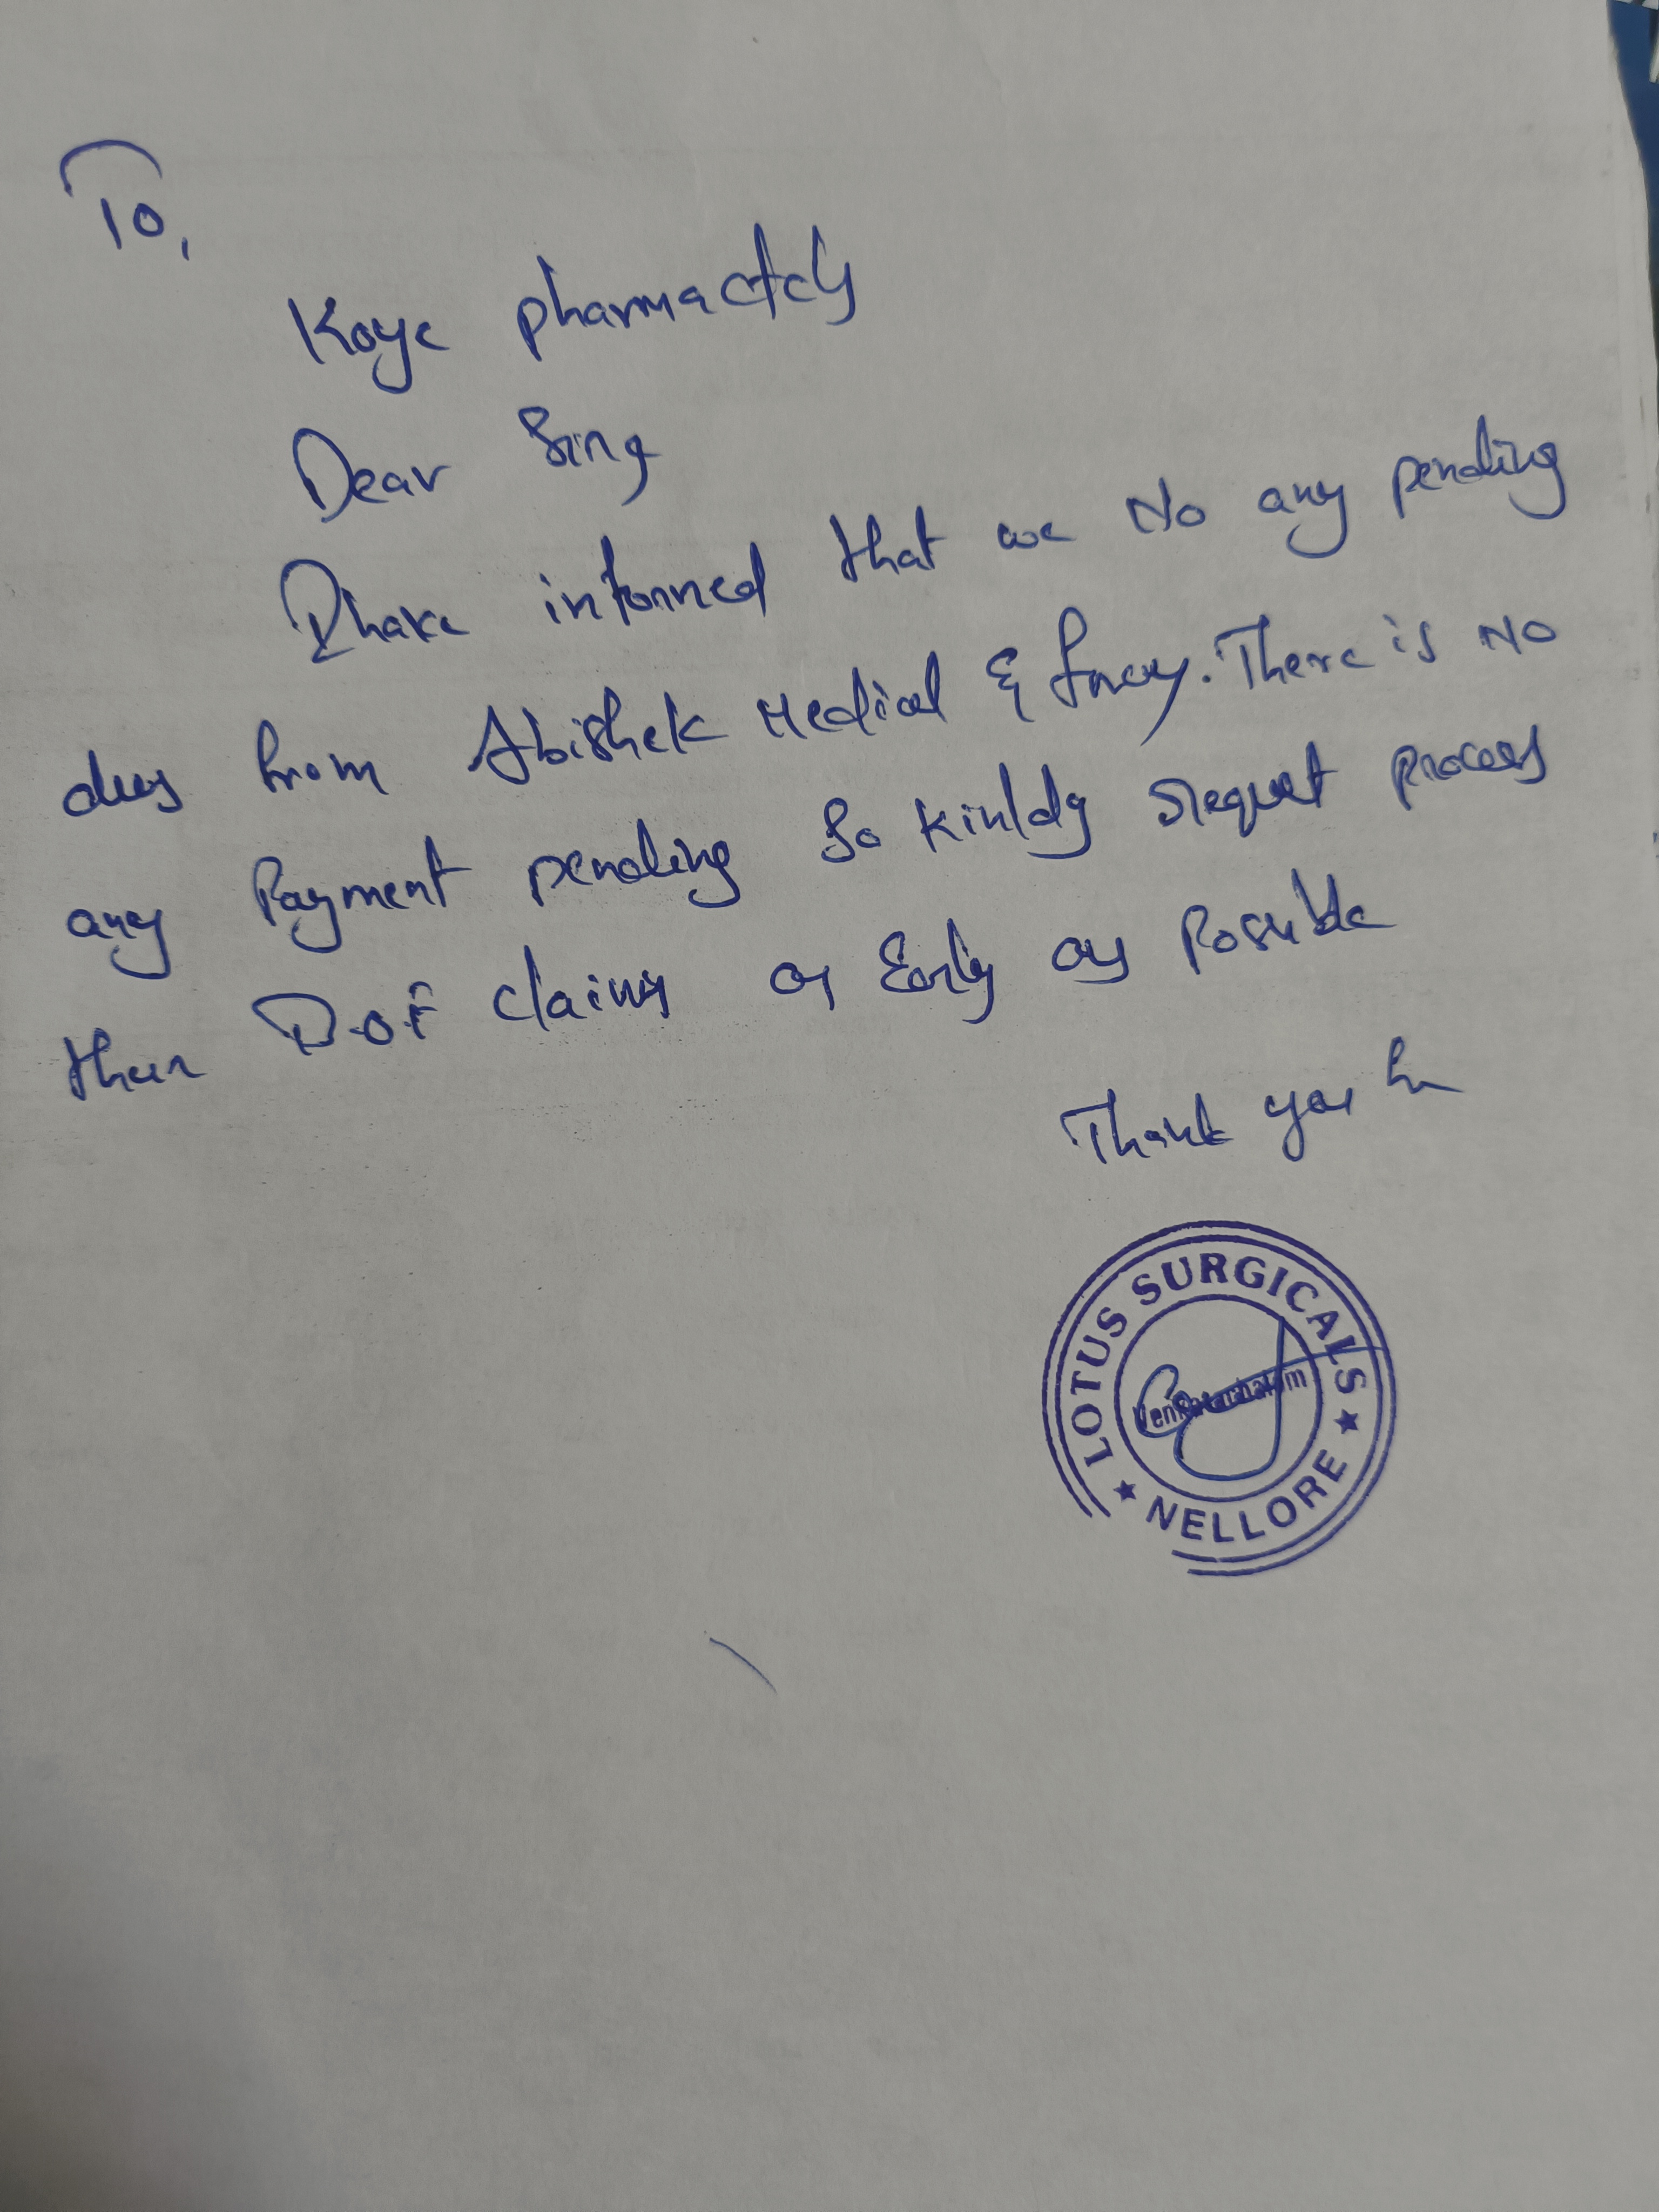 To,
Koye pharmactcls
Dear Sing
Dhake informed that we No any pending
dues from Abishek Medical & Fncy. There is NO
any Payment pending So Kinldy request process
their D.O.F claims as Early as Possible
Thank you Sir
LOTUS SURGICALS
Venkatachalam
★ NELLORE ★